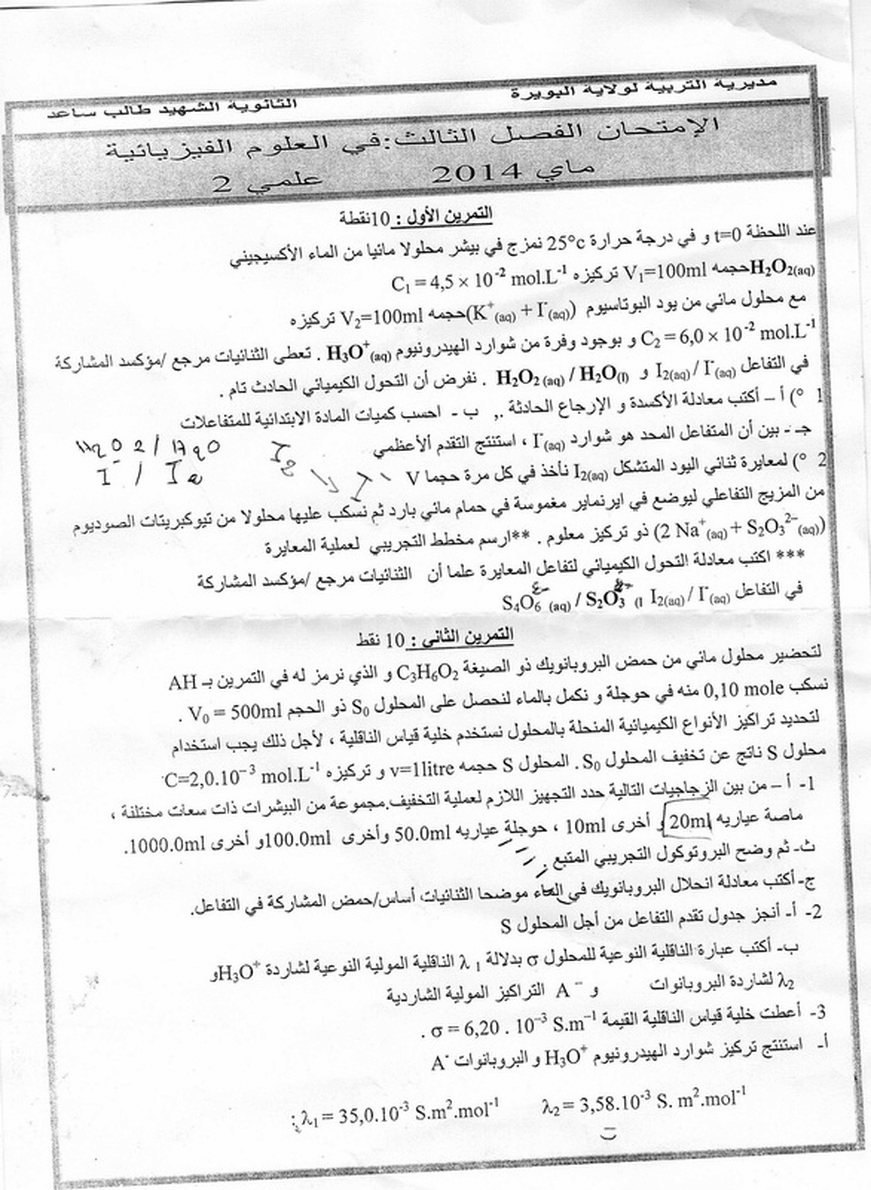 مديرية التربية لولاية البويرة الثانوية الشهيد طالب ساعد
الإمتحان الفصل الثالث:في العلوم الفيزيائية
ماي 2014 علمي 2
التمرين الأول : 10نقطة
عند اللحظة t=0 و في درجة حرارة 25°c نمزج في بيشر محلولا مائيا من الماء الأكسيجيني
H2O2(aq)حجمه V1=100ml تركيزه C1 = 4,5 × 10-2 mol.L-1
مع محلول مائي من يود البوتاسيوم (K+(aq) + I-(aq))حجمه V2=100ml تركيزه
C2 = 6,0 × 10-2 mol.L-1 و بوجود وفرة من شوارد الهيدرونيوم H3O+(aq) . تعطى الثنائيات مرجع /مؤكسد المشاركة
في التفاعل I2(aq) / I-(aq) و H2O2 (aq) / H2O(l) . نفرض أن التحول الكيميائي الحادث تام .
1 °) أ – أكتب معادلة الأكسدة و الإرجاع الحادثة ., ب - احسب كميات المادة الابتدائية للمتفاعلات
جـ - بين أن المتفاعل المحد هو شوارد I-(aq) ، استنتج التقدم ألأعظمي
H2O2/H2O I2
I-/I2 I-
2 °) لمعايرة ثنائي اليود المتشكل I2(aq) نأخذ في كل مرة حجما V
من المزيج التفاعلي ليوضع في ايرنماير مغموسة في حمام مائي بارد ثم نسكب عليها محلولا من تيوكبريتات الصوديوم
(2 Na+(aq) + S2O32–(aq)) ذو تركيز معلوم . **ارسم مخطط التجريبي لعملية المعايرة
*** اكتب معادلة التحول الكيميائي لتفاعل المعايرة علما أن الثنائيات مرجع /مؤكسد المشاركة
في التفاعل I2(aq) / I-(aq) S4O6 (aq) / S2O3 (l
التمرين الثاني : 10 نقط
لتحضير محلول مائي من حمض البروبانويك ذو الصيغة C3H6O2 و الذي نرمز له في التمرين بـ AH
نسكب 0,10 mole منه في حوجلة و نكمل بالماء لنحصل على المحلول S0 ذو الحجم V0 = 500ml .
لتحديد تراكيز الأنواع الكيميائية المنحلة بالمحلول نستخدم خلية قياس الناقلية ، لأجل ذلك يجب استخدام
محلول S ناتج عن تخفيف المحلول S0 . المحلول S حجمه v=1litre و تركيزه C=2,0.10–3 mol.L-1
1- أ – من بين الزجاجيات التالية حدد التجهيز اللازم لعملية التخفيف.مجموعة من البيشرات ذات سعات مختلفة ،
ماصة عياريه 20ml و أخرى 10ml ، حوجلة عياريه 50.0ml وأخرى 100.0mlو أخرى 1000.0ml.
ث- ثم وضح البروتوكول التجريبي المتبع .
ج- أكتب معادلة انحلال البروبانويك في الماء موضحا الثنائيات أساس/حمض المشاركة في التفاعل.
2- أ- أنجز جدول تقدم التفاعل من أجل المحلول S
ب- أكتب عبارة الناقلية النوعية للمحلول σ بدلالة λ 1 الناقلية المولية النوعية لشاردة H3O+و
λ2 لشاردة البروبانوات و A – التراكيز المولية الشاردية
3- أعطت خلية قياس الناقلية القيمة σ = 6,20 . 10–3 S.m–1 .
أ- استنتج تركيز شوارد الهيدرونيوم H3O+ و البروبانوات A-
λ1 = 35,0.10-3 S.m2.mol-1 λ2 = 3,58.10-3 S. m2.mol-1